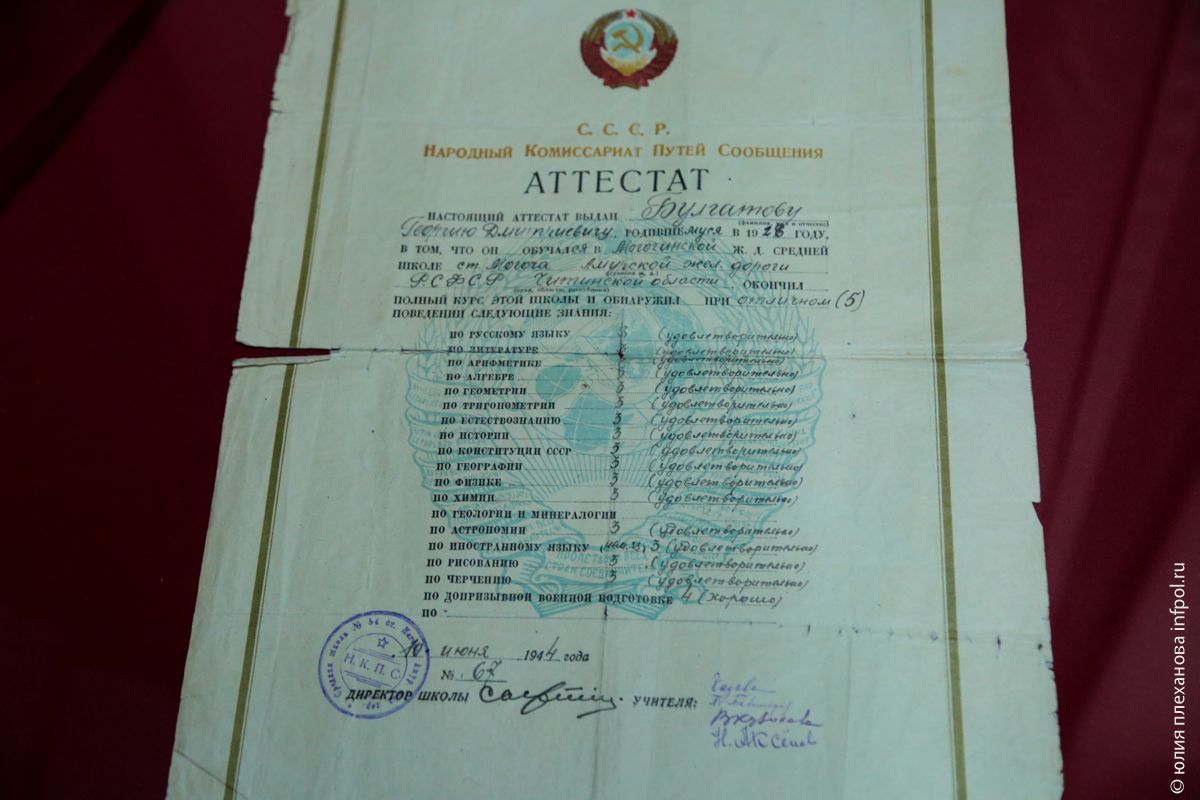 С. С. С. Р.
НАРОДНЫЙ КОМИССАРИАТ ПУТЕЙ СООБЩЕНИЯ
АТТЕСТАТ
НАСТОЯЩИЙ АТТЕСТАТ ВЫДАН Булгатову
(фамилия, имя и отчество)
Георгию Дмитриевичу, РОДИВШЕМУСЯ В 1928 ГОДУ,
В ТОМ, ЧТО ОН ОБУЧАЛСЯ В Могочинской Ж. Д. СРЕДНЕЙ
ШКОЛЕ ст. Могоча Амурской жел. дороги
РСФСР Читинской области, ОКОНЧИЛ
(края, области, республики)
ПОЛНЫЙ КУРС ЭТОЙ ШКОЛЫ И ОБНАРУЖИЛ ПРИ отличном (5)
ПОВЕДЕНИИ СЛЕДУЮЩИЕ ЗНАНИЯ:
ПО РУССКОМУ ЯЗЫКУ 3 (удовлетворительно)
ПО ЛИТЕРАТУРЕ 3 (удовлетворительно)
ПО АРИФМЕТИКЕ 3 (удовлетворительно)
ПО АЛГЕБРЕ 3 (удовлетворительно)
ПО ГЕОМЕТРИИ 3 (удовлетворительно)
ПО ТРИГОНОМЕТРИИ 3 (удовлетворительно)
ПО ЕСТЕСТВОЗНАНИЮ 3 (удовлетворительно)
ПО ИСТОРИИ 3 (удовлетворительно)
ПО КОНСТИТУЦИИ СССР 3 (удовлетворительно)
ПО ГЕОГРАФИИ 3 (удовлетворительно)
ПО ФИЗИКЕ 3 (удовлетворительно)
ПО ХИМИИ 3 (удовлетворительно)
ПО ГЕОЛОГИИ И МИНЕРАЛОГИИ
ПО АСТРОНОМИИ 3 (удовлетворительно)
ПО ИНОСТРАННОМУ ЯЗЫКУ 3 (удовлетворительно)
ПО РИСОВАНИЮ 3 (удовлетворительно)
ПО ЧЕРЧЕНИЮ 3 (удовлетворительно)
ПО ДОПРИЗЫВНОЙ ВОЕННОЙ ПОДГОТОВКЕ 4 (хорошо)
ПО -
10 июня 1944 года
№ 67
Н.К.П.С.
ДИРЕКТОР ШКОЛЫ УЧИТЕЛЯ:
Н. Аксёнов
© юлия плеханова infpol.ru